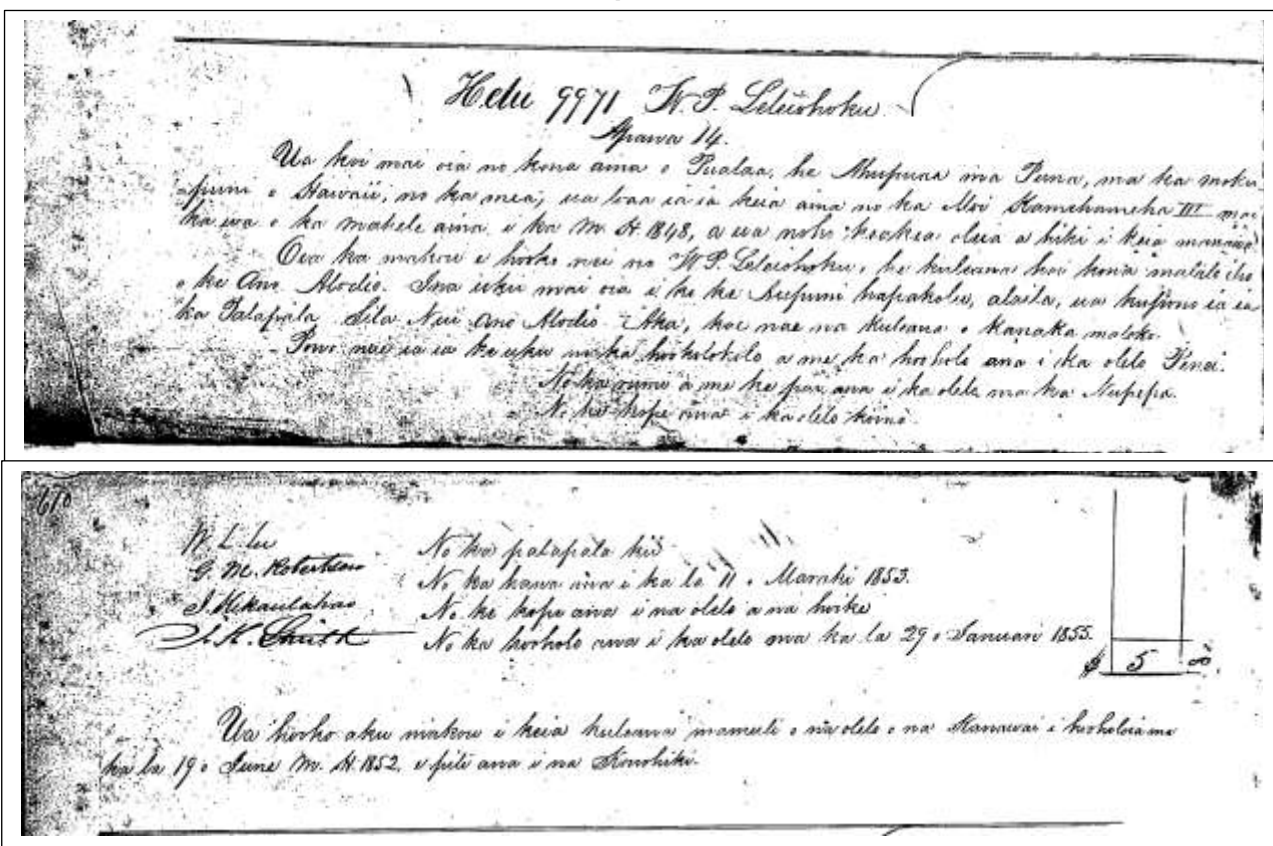 Helu 9971 W. P. Leleiohoku
Apana 14.
Ua koi mai oia no kona aina o Pualaa, he Ahupuaa ma Puna, ma ka moku-
-puni o Hawaii, no ka mea, ua loaa ia ia keia aina no ka Moi Kamehameha III mai
ka wa o ka mahele aina i ka M. H. 1848, a ua noho keakea oleia a hiki i keia manawa
Oia ka makou e hooko nei no W. P. Leleiohoku, he kuleana kona malalo iho
o ke Ano Alodio. Ina uku mai oia i ke Aupuni hapakolu, alaila, ua kupono ia ia
ka Palapala Sila Nui Ano Alodio. Aka, koe nae na kuleana o Kanaka maloko.
Pono nae ia ia ke uku i ka hookolokolo a me ka hooholo ana i ka olelo Penei.
No ka rumi a me ke pai ana i ka olelo ma ka Nupepa.
No ke kope ana i ka olelo hoino
610
W. L. Lee
G. M. Robertson
J. Kekaulahao
J. H. Smith
No ka palapala kii
No ka hana ana i ka la 11 o Maraki 1853.
No ke kope ana i na olelo a na hoike
No ka hooholo ana i ka olelo ma ka la 29 o Ianuari 1855.
$ 5
Ua hooko aku makou i keia kuleana mamuli o na olelo o na Kanawai i hooholoia ma
ka la 19 o June M. H. 1852. e pili ana i na Konohiki.